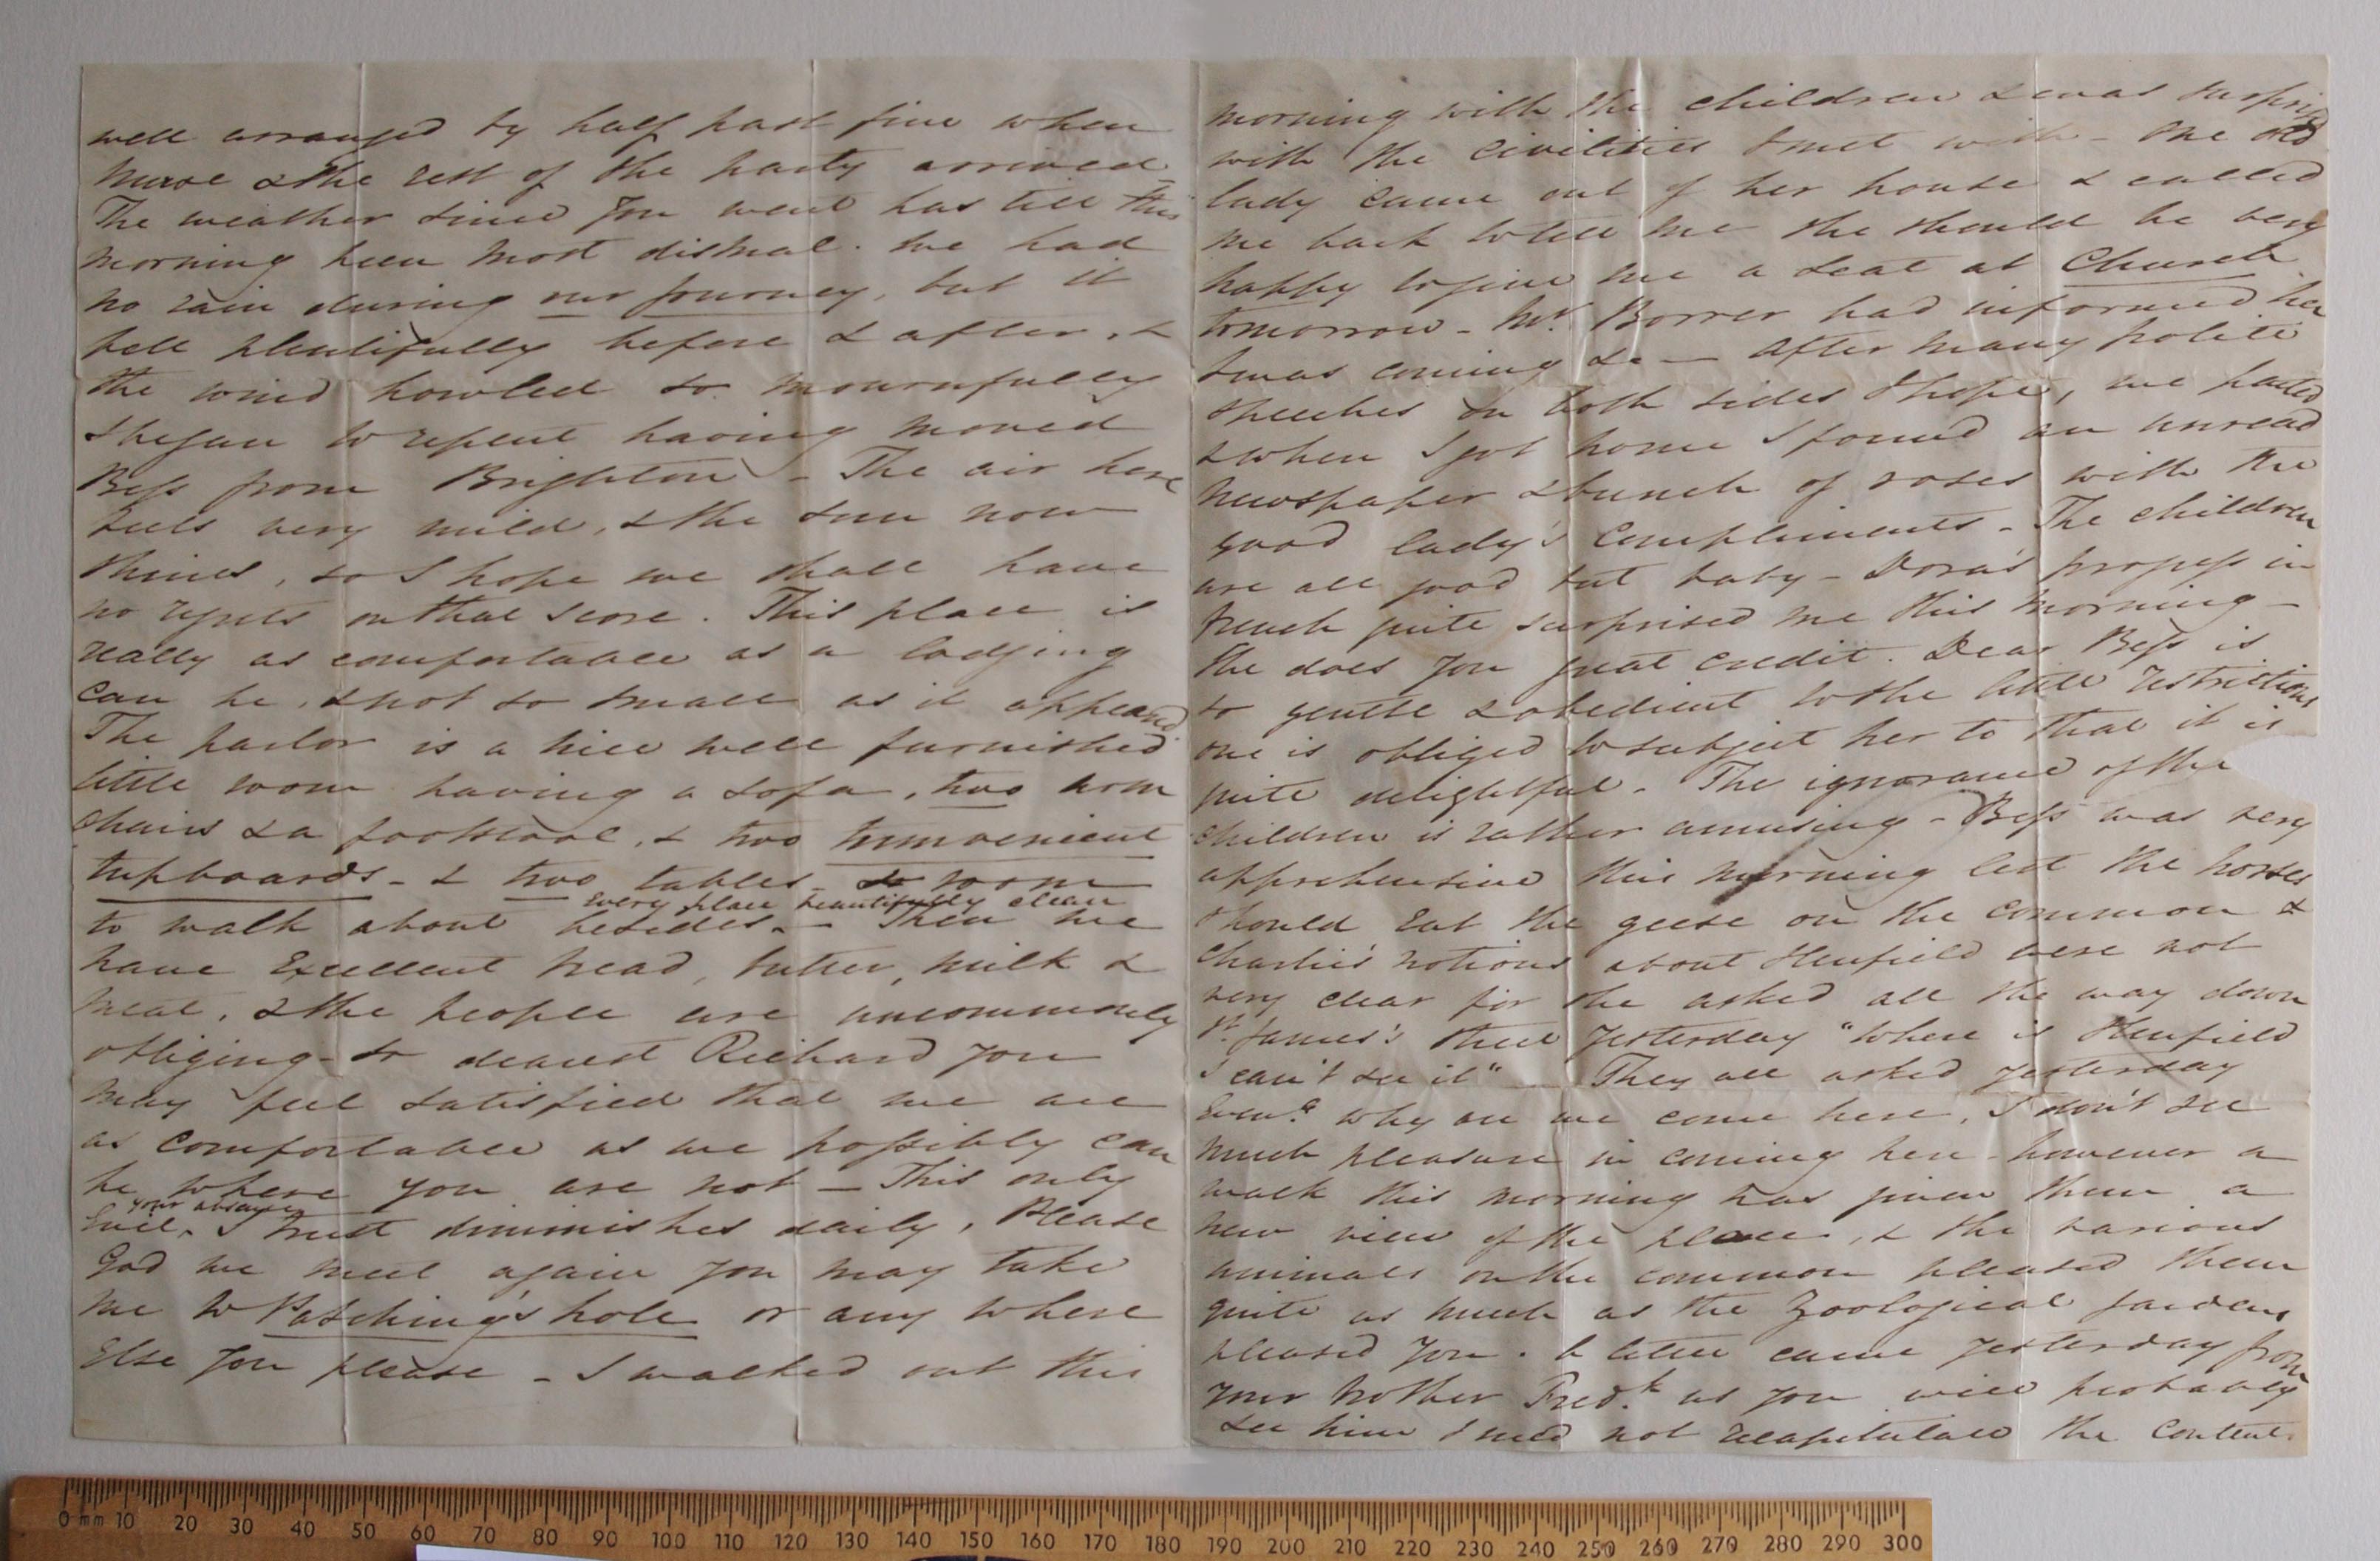 well arranged by half past five when
Nurse & the rest of the party arrived -
The weather since you went has till this
morning been most dismal. We had
no rain during our journey, but it
fell plentifully before & after, &
the wind howled so mournfully
I began to repent having moved
Bess from Brighton - The air here
feels very mild, & the sun now
shines, so I hope we shall have
no regrets on that score. This place is
really as comfortable as a lodging
can be, & not so small as it appeared
The parlor is a nice well furnished
little room having a sofa, two arm
chairs & a footstool, & two
cupboards - & two tables - & room
every place beautifully clean
to walk about besides. - Then we
have excellent bread, butter, milk &
meat, & the people are uncommonly
obliging - so dearest Richard you
may feel satisfied that we are
as comfortable as we possibly can
be where you are not - This only
your absence
evil, I trust diminishes daily, Please
God we meet again you may take
me to Patching's hole or any where
else you please - I walked out this
morning with the children & was surprised
with the civilities I met with - The old
lady came out of her house & called
me back to tell me she should be very
happy to give me a seat at Church
tomorrow - Mr. Borrer had informed her
I was coming &c - After many polite
speeches on both sides I hope, we parted
& when I got home I found an unread
newspaper & bunch of roses with the
good lady's compliments - The children
are all good but baby - Dora's progress in
French quite surprised me this morning -
She does you great credit. Dear Bess is
so gentle & obedient to the little restrictions
one is obliged to subject her to that it is
quite delightful. The ignorance of the
children is rather amusing - Bess was very
apprehensive this morning lest the horses
should eat the geese on the common &
Charlie's notions about Henfield were not
very clear for she asked all the way down
St. James's Street yesterday "Where is Henfield
I can't see it" - They all asked yesterday
Eveng. why are we come here, I don't see
much pleasure in coming here - however a
walk this morning has given them a
new view of the place, & the various
animals on the common pleased them
quite as much as the Zoological gardens
pleased you. A letter came yesterday from
your brother Fredk. as you will probably
see him I need not recapitulate the contents